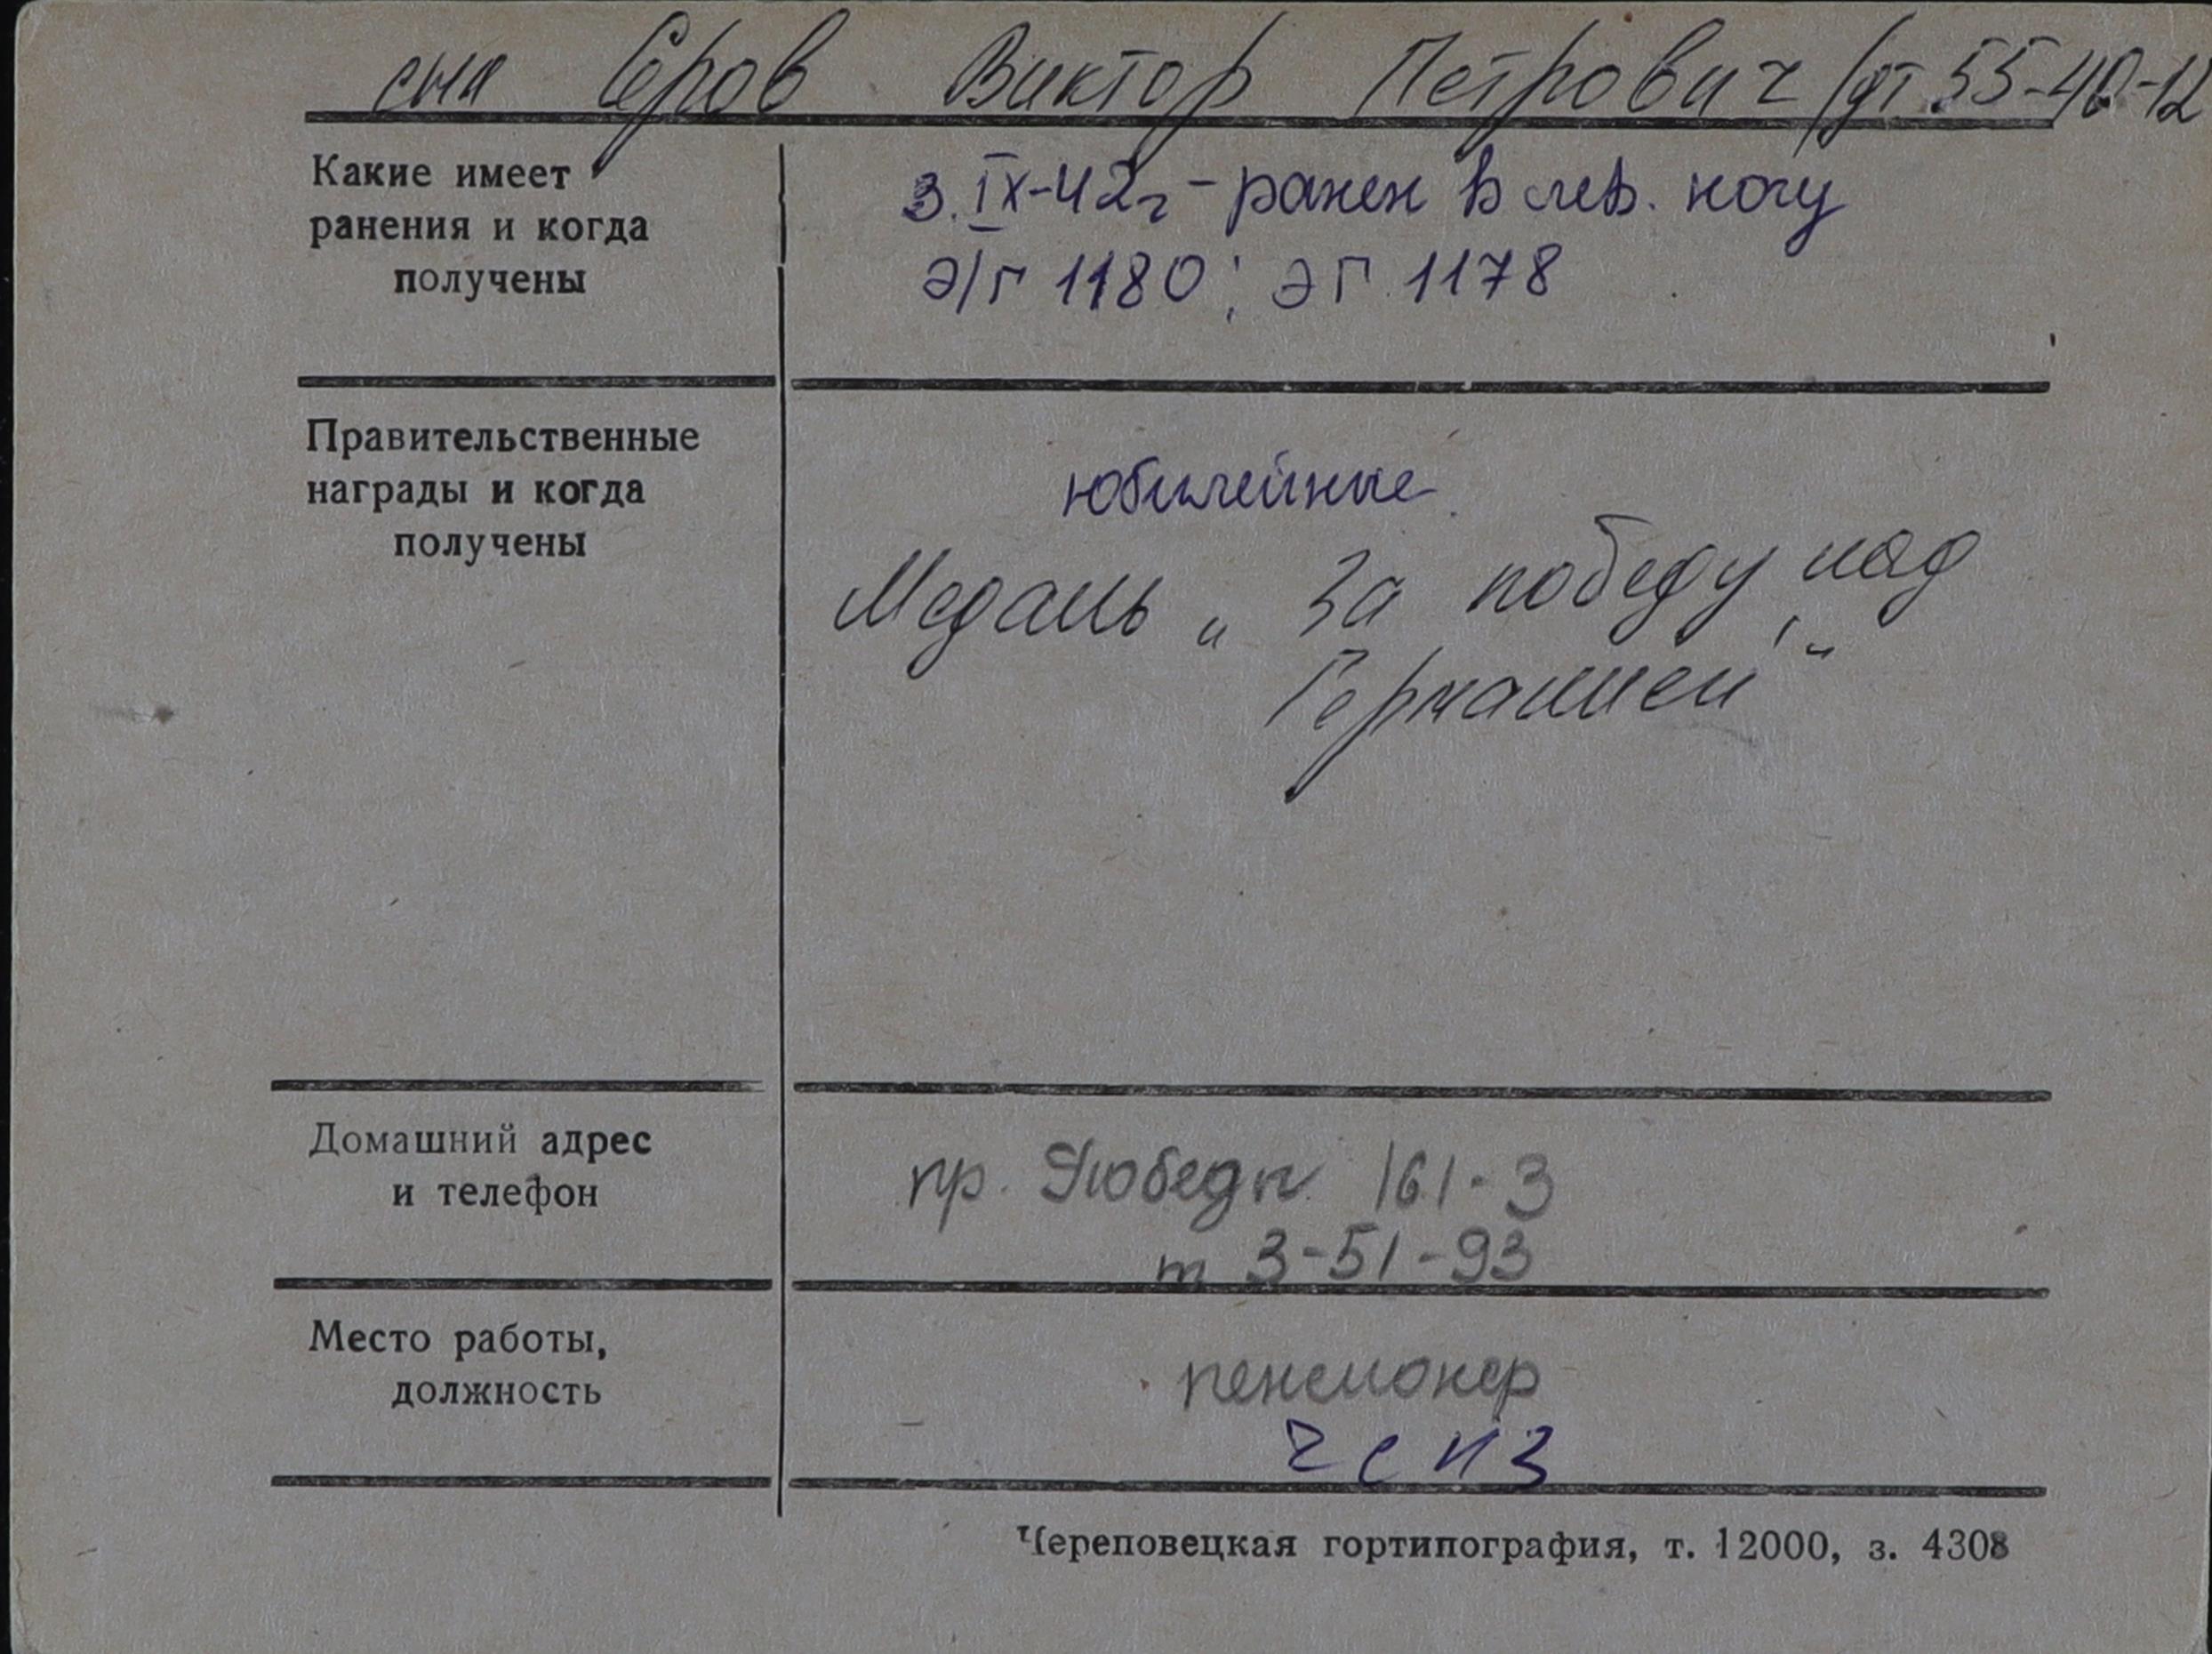 сын Серов Виктор Петрович /дт 55-40-12
Какие имеет
ранения и когда
получены
3.IX-42г - ранен в лев. ногу
э/г 1180; ЭГ 1178
Правительственные
награды и когда
получены
юбилейные
Медаль „ За победу над
Германией"
Домашний адрес
и телефон
пр. Победы 161-3
т 3-51-93
Место работы,
должность
пенсионер
Череповецкая гортипография, т. 12000, з. 4308